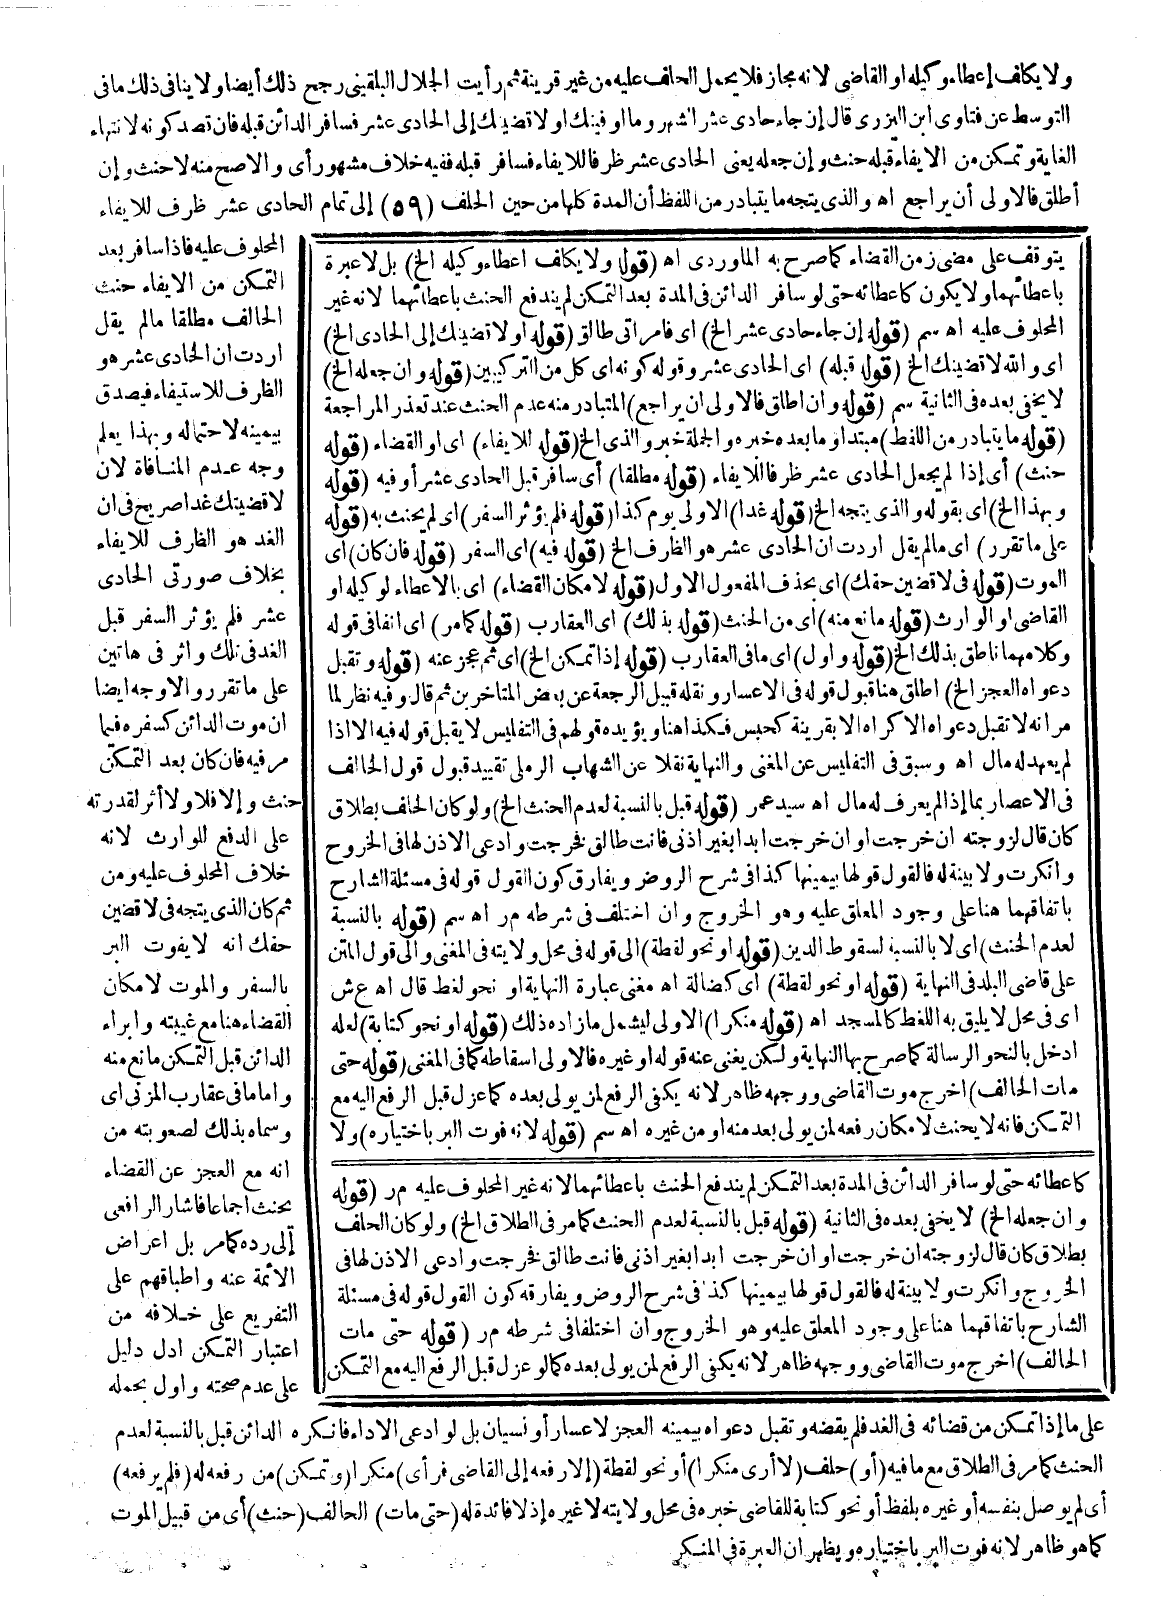 ولا يكافى إعطاء وكيله او القاضى لانه مجاز فلا يحمل الحلف عليه من غير قرينة ثم رأيت الجلال البلقينى رجح ذلك أيضا ولا ينافى ذلك ما فى
التوسط عن فتاوى ابن البزرى قال إن جاء حادى عشر الشهر وما اوفيتك او لاقضينك إلى الحادى عشر فسافر الدائن قبله فان قصد كونه لانتهاء
الغاية وتمكن من الايفاء قبله حنث وإن جعله يعنى الحادى عشر ظرفا للايفاء فسافر قبله ففيه خلاف مشهور أى والاصح منه لا حنث وإن
أطلق فالاولى أن يراجع اه والذى يتجه ما يتبادر من اللفظ أن المدة كلها من حين الحلف (٥٩) إلى تمام الحادى عشر ظرف للايفاء
المحلوف عليه فاذا سافر بعد
التمكن من الايفاء حنث
الحالف مطلقا مالم يقل
اردت ان الحادى عشر هو
الظرف للاستيفاء فيصدق
بيمينه لاحتماله وبهذا يعلم
وجه عدم المنافاة لان
لاقضينك غدا صريح فى ان
الغد هو الظرف للايفاء
بخلاف صورتى الحادى
عشر فلم يؤثر السفر قبل
الغد فى تلك واثر فى هاتين
على ما تقرر والاوجه ايضا
ان موت الدائن كسفره فيما
مر فيه فان كان بعد التمكن
حنث وإلا فلا ولا أثر لقدرته
على الدفع للوارث لانه
خلاف المحلوف عليه ومن
ثم كان الذى يتجه فى لاقضين
حقك انه لا يفوت البر
بالسفر والموت لامكان
القضاء هنا مع غيبته وابراء
الدائن قبل التمكن مانع منه
واما ما فى عقارب المزنى اى
وسماه بذلك لصعوبته من
انه مع العجز عن القضاء
يحنث اجماعا فاشار الرافعى
إلى رده كما مر بل اعراض
الائمة عنه واطباقهم على
التفريع على خلافه من
اعتبار التمكن ادل دليل
على عدم صحته واول بحمله
يتوقف على مضى زمن القضاء كما صرح به الماوردى اه (قوله ولا يكافى اعطاء وكيله الخ) بل لا عبرة
باعطائهما ولا يكون كاعطائه حتى لو سافر الدائن فى المدة بعد التمكن لم يندفع الحنث باعطائهما لانه غير
المحلوف عليه اه سم (قوله إن جاء حادى عشر الخ) اى فامراتى طالق (قوله او لاقضينك إلى الحادى الخ)
اى والله لاقضينك الخ (قوله قبله) اى الحادى عشر وقوله كونه اى كل من التركيبين (قوله وان جعله الخ)
لا يخفى بعده فى الثانية سم (قوله وان اطلق فالاولى ان يراجع) المتبادر منه عدم الحنث عند تعذر المراجعة
(قوله ما يتبادر من اللفظ) مبتدا وما بعده خبره والجملة خبر والذى الخ (قوله للايفاء) اى او القضاء (قوله
حنث) أى إذا لم يجعل الحادى عشر ظرفا للايفاء (قوله مطلقا) أى سافر قبل الحادى عشر أو فيه (قوله
وبهذا الخ) اى بقوله والذى يتجه الخ (قوله غدا) الاولى يوم كذا (قوله فلم يؤثر السفر) اى لم يحنث به (قوله
على ما تقرر) اى مالم يقل اردت ان الحادى عشر هو الظرف الخ (قوله فيه) اى السفر (قوله فان كان) اى
الموت (قوله فى لاقضين حقك) اى بحذف المفعول الاول (قوله لامكان القضاء) اى بالاعطاء لوكيله او
القاضى او الوارث (قوله مانع منه) اى من الحنث (قوله بذلك) اى العقارب (قوله كما مر) اى انفا فى قوله
وكلامهما ناطق بذلك الخ (قوله واول) اى ما فى العقارب (قوله إذا تمكن الخ) اى ثم عجز عنه (قوله وتقبل
دعواه العجز الخ) اطلق هنا قبول قوله فى الاعسار ونقله قبيل الرجعة عن بعض المتاخرين ثم قال وفيه نظر لما
مر انه لا تقبل دعواه الاكراه الا بقرينة كحبس فكذا هنا ويؤيده قولهم فى التفليس لا يقبل قوله فيه الا اذا
لم يعهد له مال اه وسبق فى التفليس عن المغنى والنهاية نقلا عن الشهاب الرملى تقييد قبول قول الحالف
فى الاعصار بما إذا لم يعرف له مال اه سيد عمر (قوله قبل بالنسبة لعدم الحنث الخ) ولو كان الحلف بطلاق
كان قال لزوجته ان خرجت او ان خرجت ابدا بغير اذنى فانت طالق فخرجت وادعى الاذن لها فى الخروج
وانكرت ولا بينة له فالقول قولها بيمينها كذا فى شرح الروض ويفارق كون القول قوله فى مسئلة الشارح
باتفاقهما هنا على وجود المعلق عليه وهو الخروج وان اختلفا فى شرطه مر اه سم (قوله بالنسبة
لعدم الحنث) اى لا بالنسبة لسقوط الدين (قوله او نحو لقطة) الى قوله فى محل ولايته فى المغنى والى قول المتن
على قاضى البلد فى النهاية (قوله او نحو لقطة) اى كضالة اه مغنى عبارة النهاية او نحو لغط قال اه ع ش
اى فى محل لا يليق به اللغط كالمسجد اه (قوله منكرا) الاولى ليشمل ما زاده ذلك (قوله او نحو كتابة) لعله
ادخل بالنحو الرسالة كما صرح بها النهاية ولكن يغنى عنه قوله او غيره فالاولى اسقاطه كما فى المغنى (قوله حتى
مات الحالف) اخرج موت القاضى ووجهه ظاهر لانه يكفى الرفع لمن يولى بعده كما عزل قبل الرفع اليه مع
التمكن فانه لا يحنث لامكان رفعه لمن يولى بعد منه او من غيره اه سم (قوله لانه فوت البر باختياره) ولا
كاعطائه حتى لو سافر الدائن فى المدة بعد التمكن لم يندفع الحنث باعطائهما لانه غير المحلوف عليه مر (قوله
وان جعله الخ) لا يخفى بعده فى الثانية (قوله قبل بالنسبة لعدم الحنث كما مر فى الطلاق الخ) ولو كان الحلف
بطلاق كان قال لزوجته ان خرجت او ان خرجت ابدا بغير اذنى فانت طالق فخرجت وادعى الاذن لها فى
الخروج وانكرت ولا بينة له فالقول قولها بيمينها كذا فى شرح الروض ويفارقه كون القول قوله فى مسئلة
الشارح باتفاقهما هنا على وجود المعلق عليه وهو الخروج وان اختلفا فى شرطه مر (قوله حتى مات
الحالف) اخرج موت القاضى ووجهه ظاهر لانه يكفى الرفع لمن يولى بعده كما لو عزل قبل الرفع اليه مع التمكن
على ما إذا تمكن من قضائه فى الغد فلم يقضه وتقبل دعواه بيمينه العجز لاعسار أو نسيان بل لو ادعى الاداء فانكره الدائن قبل بالنسبة لعدم
الحنث كما مر فى الطلاق مع ما فيه (أو) حلف (لا أرى منكرا) أو نحو لقطة (إلا رفعه إلى القاضى فرأى) منكرا (وتمكن) من رفعه له (فلم يرفعه)
أى لم يوصل بنفسه أو غيره بلفظ أو نحو كتابة للقاضى خبره فى محل ولايته لا غيره إذ لا فائدة له (حتى مات) الحالف (حنث) أى من قبيل الموت
كما هو ظاهر لانه فوت البر باختياره ويظهر ان العبرة فى المنكر